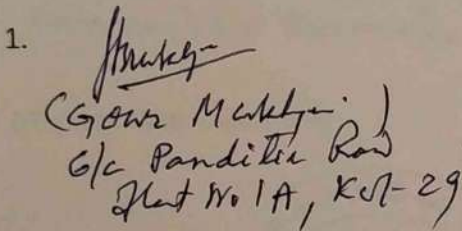 1.
(Gour Mukherjee)
6/c Panditia Road
Flat No 1A, Kol-29